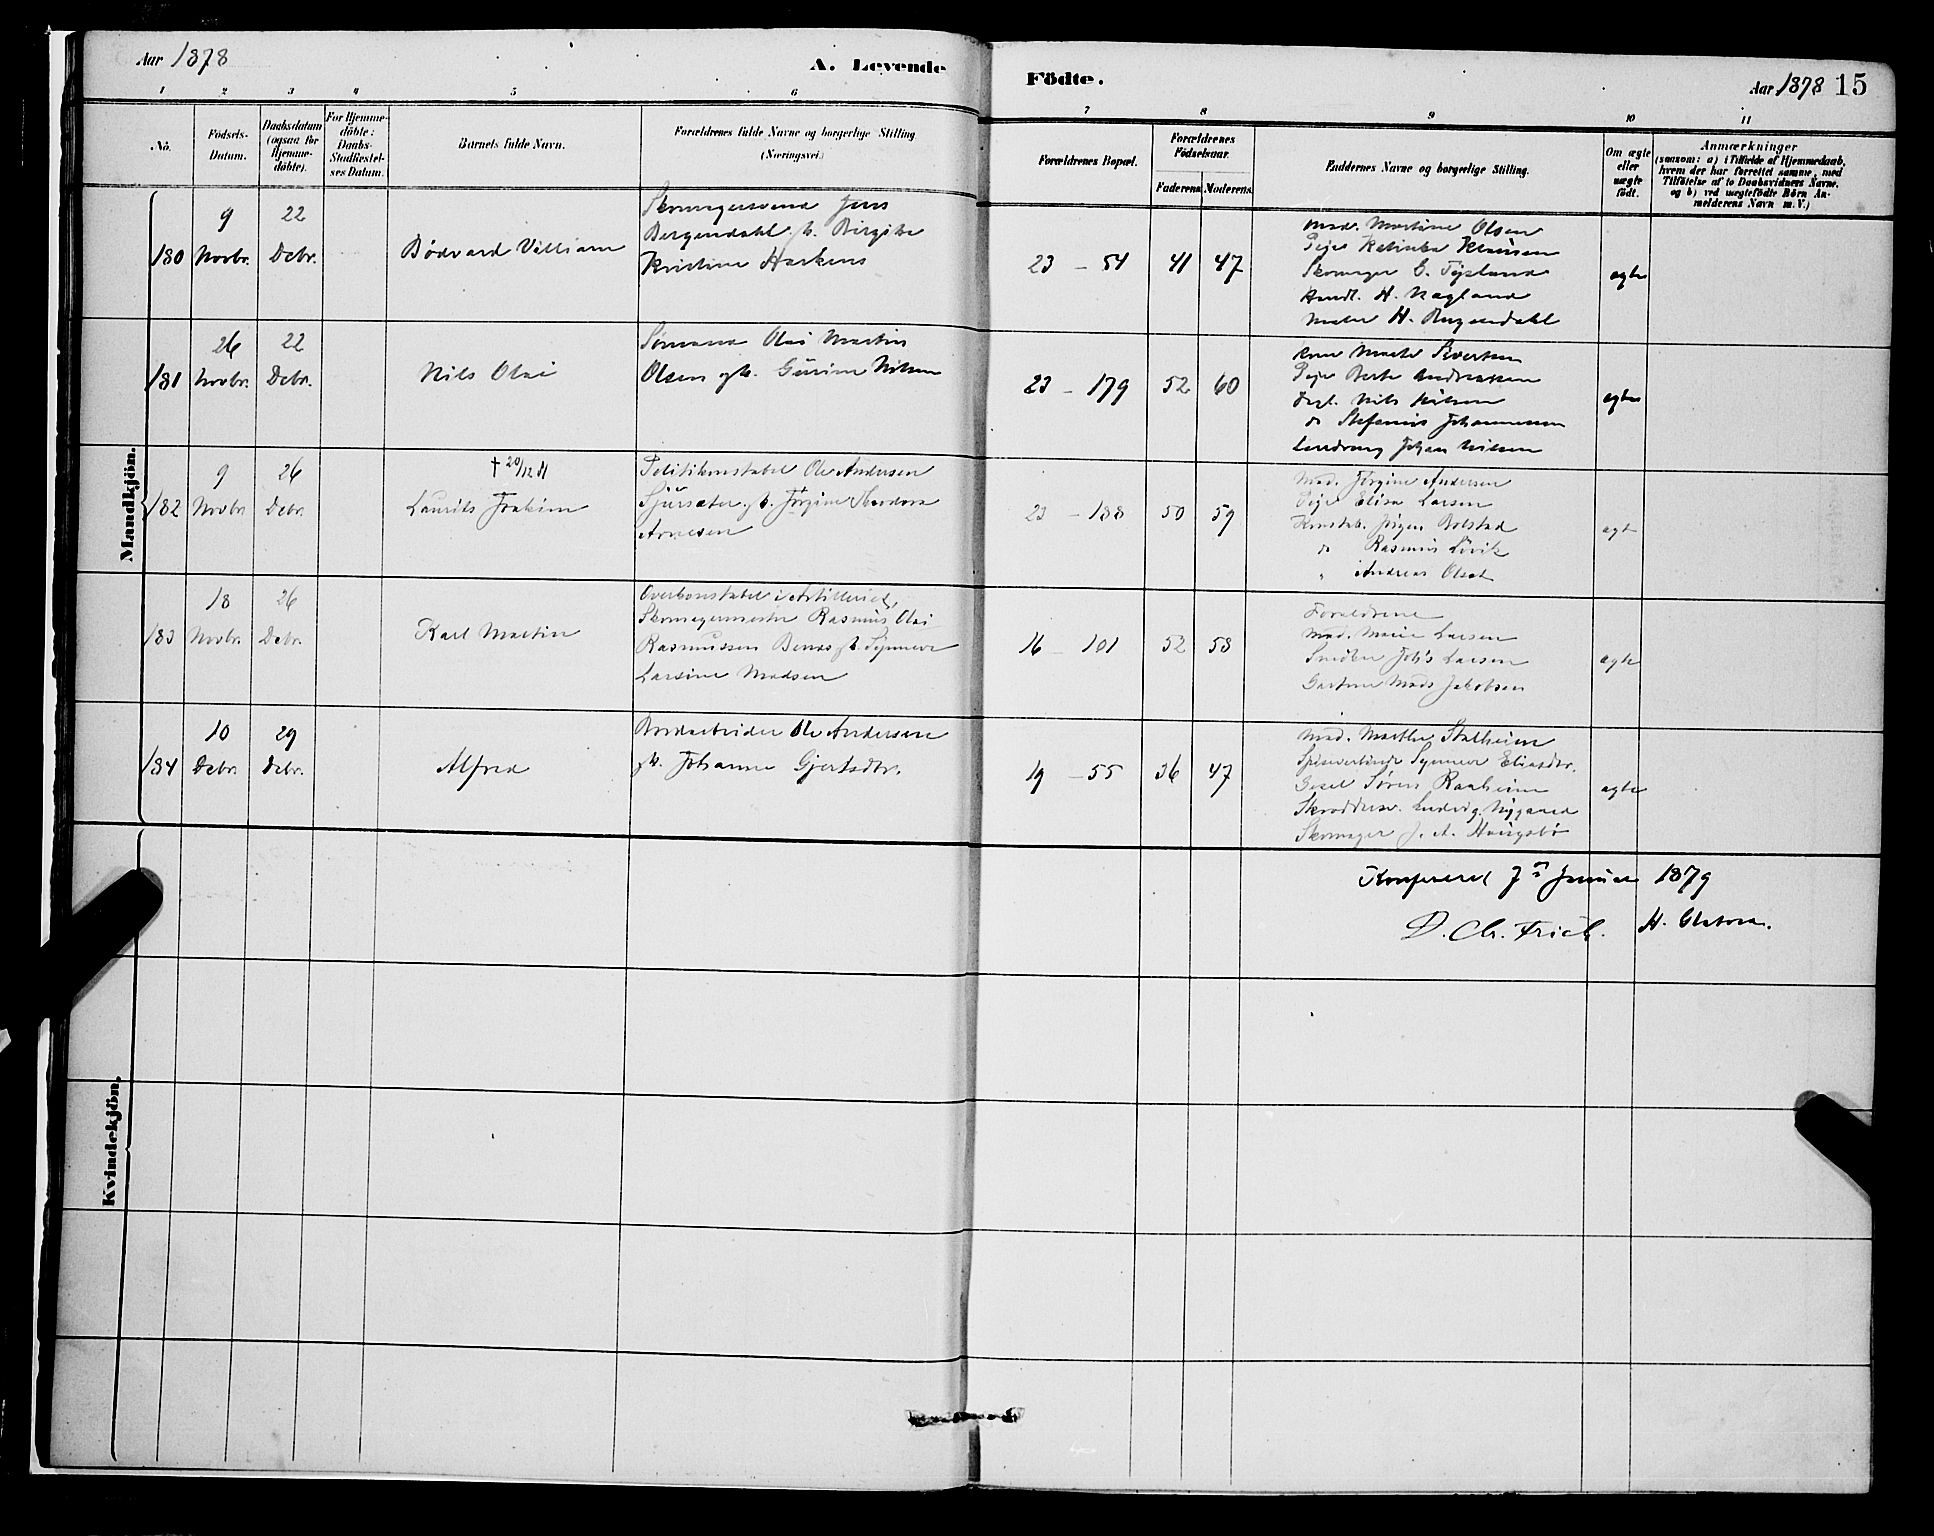 Aar 1878
A. Levende Födte.
Aar 1878 15
1 2 3 4 5 6 7 8 9 10 11
No.
Födsels-Datum.
Daabsdatum (ogsaa for Hjemme-döbte).
For Hjemme-döbte: Daabs-Stadfæstel-ses Datum.
Barnets fulde Navn.
Forældrenes fulde Navne og borgerlige Stilling
(Næringsvei)
Forældrenes Bopæl.
Forældrenes Födselsaar.
Faderens Moderens
Faddernes Navne og borgerlige Stilling.
Om ægte eller uægte födt.
Anmærkninger
(saasom: a) i Tilfælde af Hjemmedaab, hvem der har forrettet samme, med Tilföielse af to Daabsvidners Navne, og b) ved uægtefödte Börn An-melderens Navn m. V.)
Mandkjön.
180
9 Novbr.
22 Debr.
Bödvard Villiam
Skomagersvend Jens
Bergendahl. h. Birgitte
Kristine Harkens
23 – 54
41 47
Mad. Martine Olsen
Pige Katinka Klausen
Skomager E. Tysland
Handl. H. Nagland
Maler H. Bergendahl
ægte
181
26 Novbr.
22 Debr.
Nils Olai
Sömand Olai Martin
Olsen og h. Gurine Nilsen
23 – 179
52 60
Kone Marte Sivertsen
Pige Berte Andreassen
Nils Nilsen
do Stefanus Johannessen
Johan Nilsen
ægte
182
9 Novbr
26 Debr.
† 20/12 78
Laurits Joakim
Politikonstabel Ole Andersen
Sjursæter. h. Jörgine Theodora
Arnesen
23 – 188
50 59
Mad. Jörgine Andersen
Pige Elisa Larsen
Konstab. Jörgen Bolstad
do Rasmus Lövik
" Andreas Olsen
ægt
183
18 Novbr.
26 Debr.
Karl Martin
Overkonstabel i Artilleriet,
Skomagermester Rasmus Olai
Rasmussen h. Synneve
Larsine Madsen
16 – 101
52 58
Forældrene
Mad. Marie Larsen
Snedker Johs Larsen
Gartner Mads Jakobsen
ægte
184
10 Debr.
29 Debr.
Alfred
Ole Andersen
h. Johanne Gjertsdtr.
19 – 55
36 47
Mad. Marthe Stalheim
Synneve Eliasdtr.
Gesel Sören Raaheim
Skrædders. Ludvig Nygaard
Skomager J. A. Haugsbö
ægte
Konfereret 7de Januar 1879
D. Chr. Frich. H.
Kvindekjön.